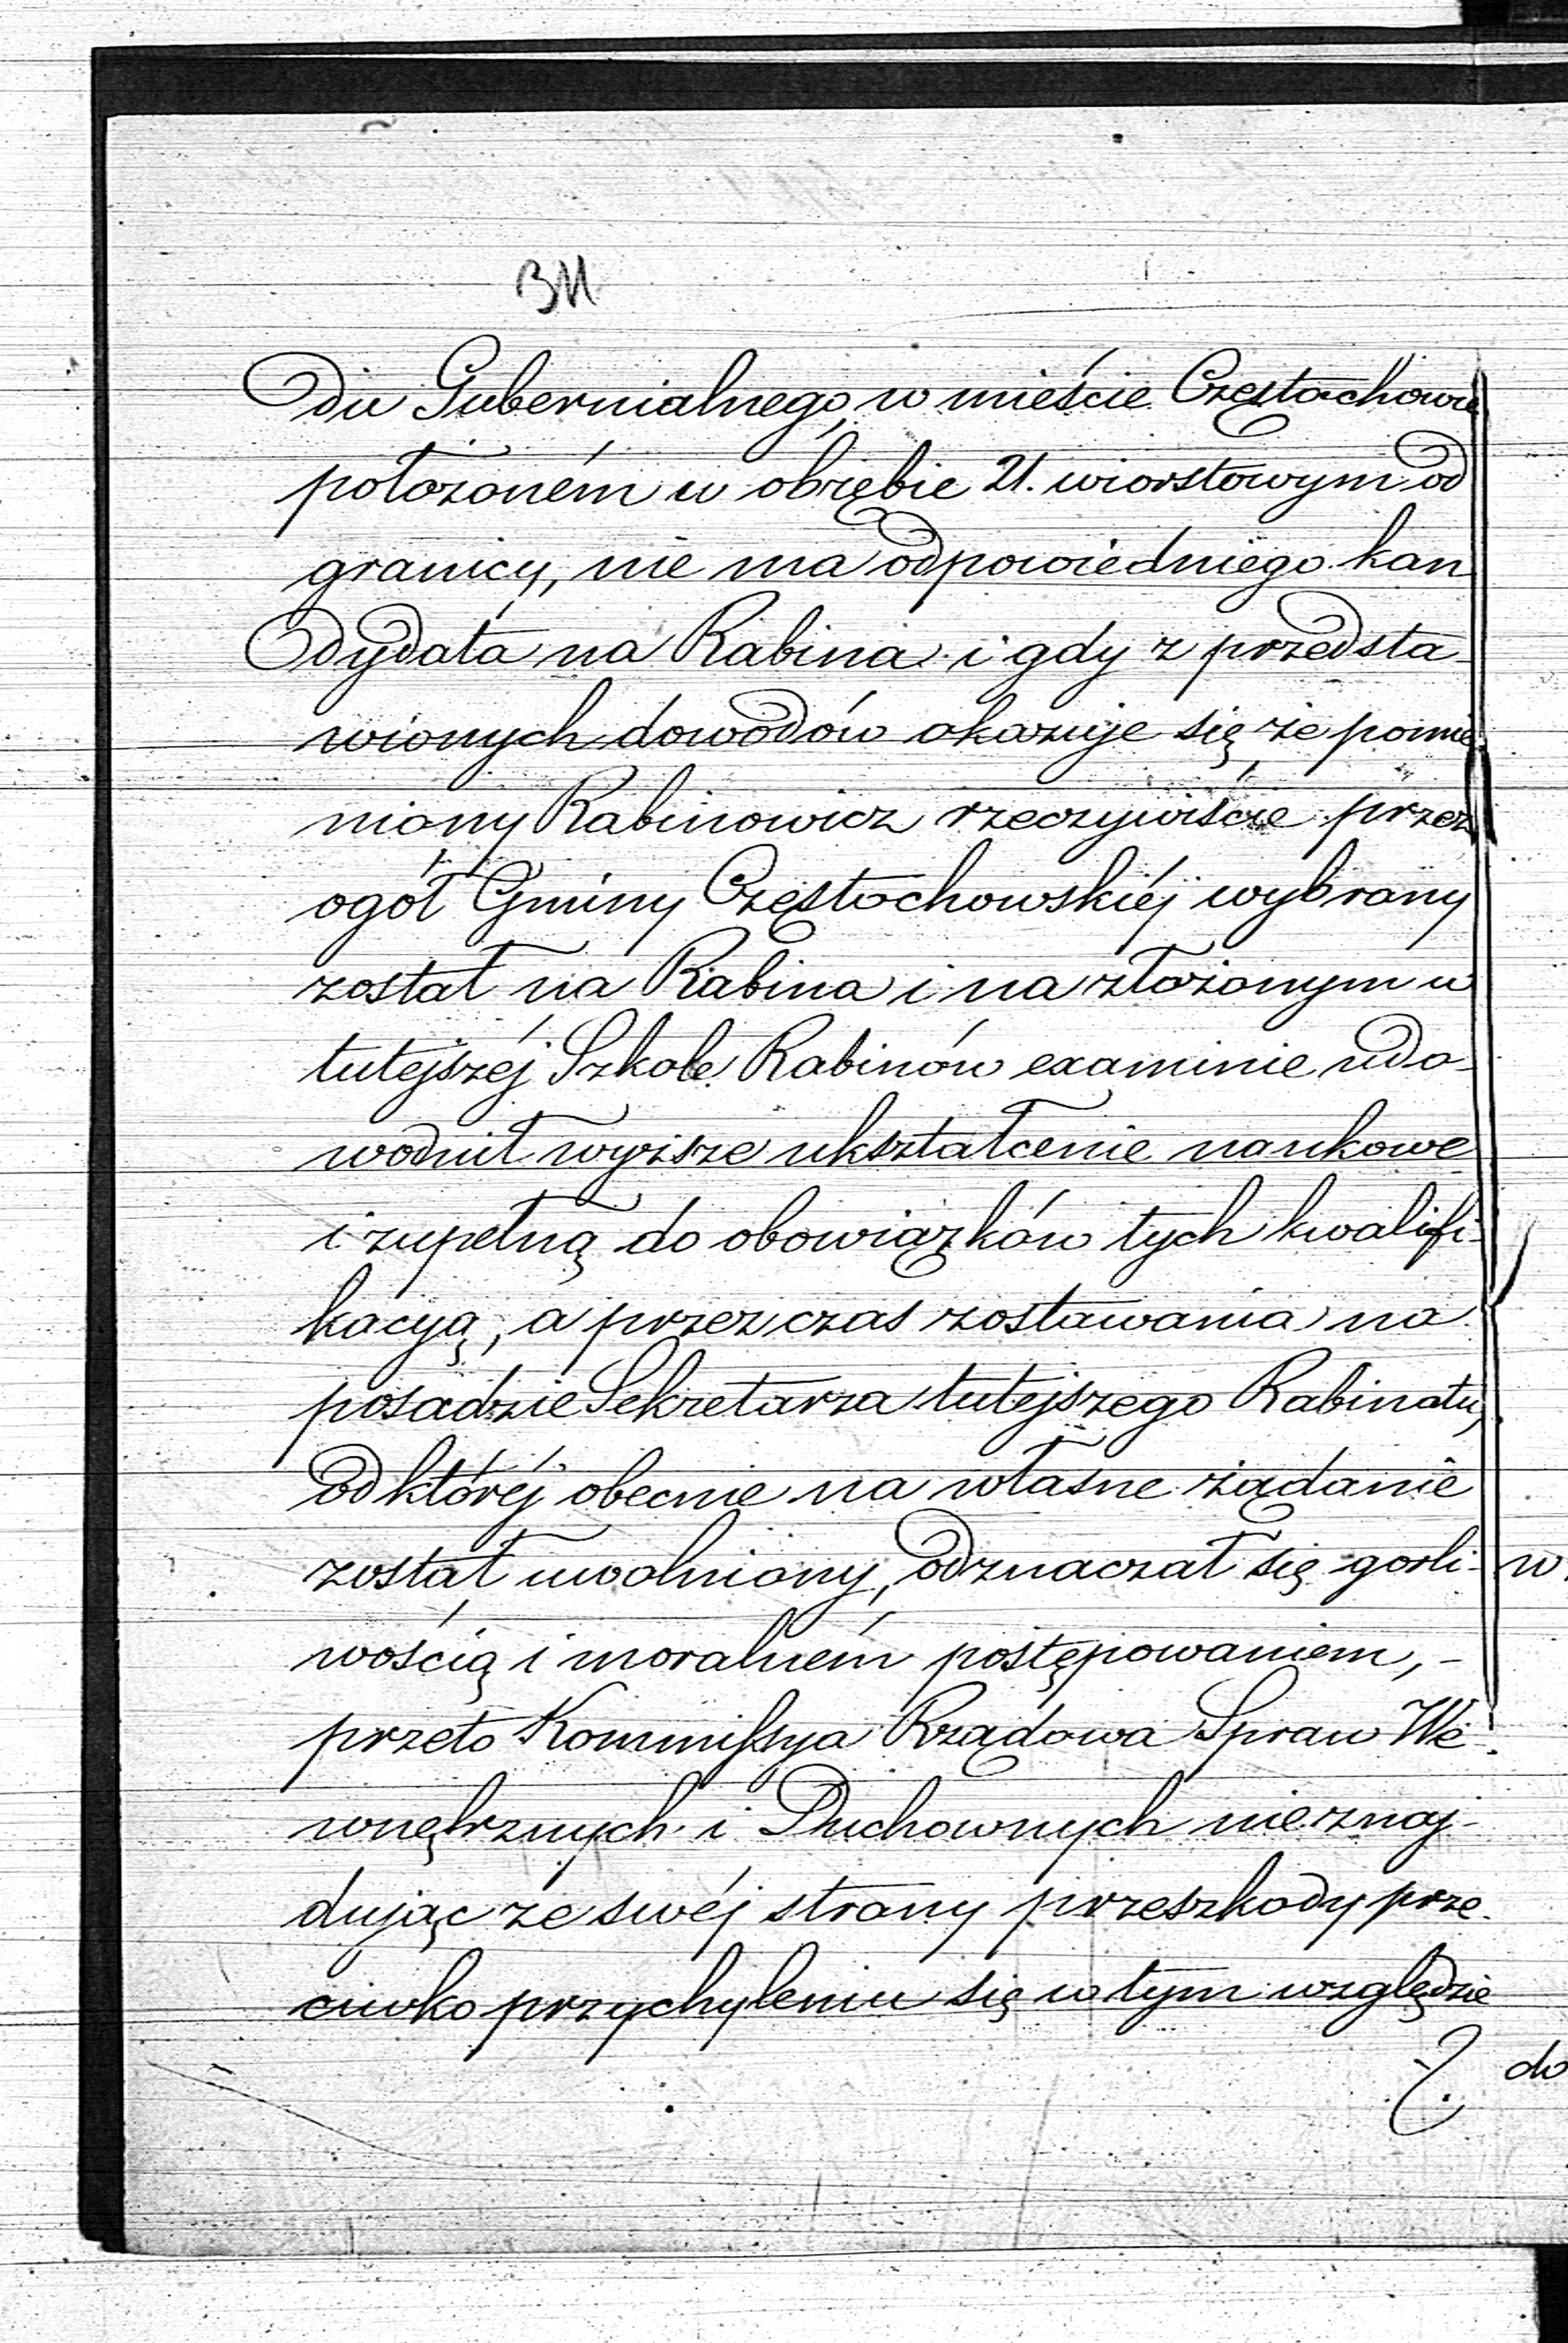 du Gubernialnego, w mieście Częstochowie
położoném w obrębie 21. wiorstowym od
granicy, nie ma odpowiedniego kan
dydata na Rabina i gdy z przedsta-
wionych dowodów okazuje się że pomie
niony Rabinowicz rzeczywiście przez
ogół Gminy Częstochowskiéj wybrany
został na Rabina i na złożonym w
tutejszéj Szkole Rabinów examinie udo-
wodnił wyższe ukształcenie naukowe
i zupełną do obowiązków tych kwalifi-
kacyą, a przez czas zostawania na
posadzie Sekretarza tutejszego Rabinatu,
od któréj obecnie na własne żądanie
został uwolniony, odznaczał się gorli-
wością i moralném postępowaniem, -
przeto Kommissya Rządowa Spraw We-
wnętrznych i Duchownych nieznaj-
dując ze swéj strony przeszkody prze-
ciwko przychyleniu się w tym względzie
do